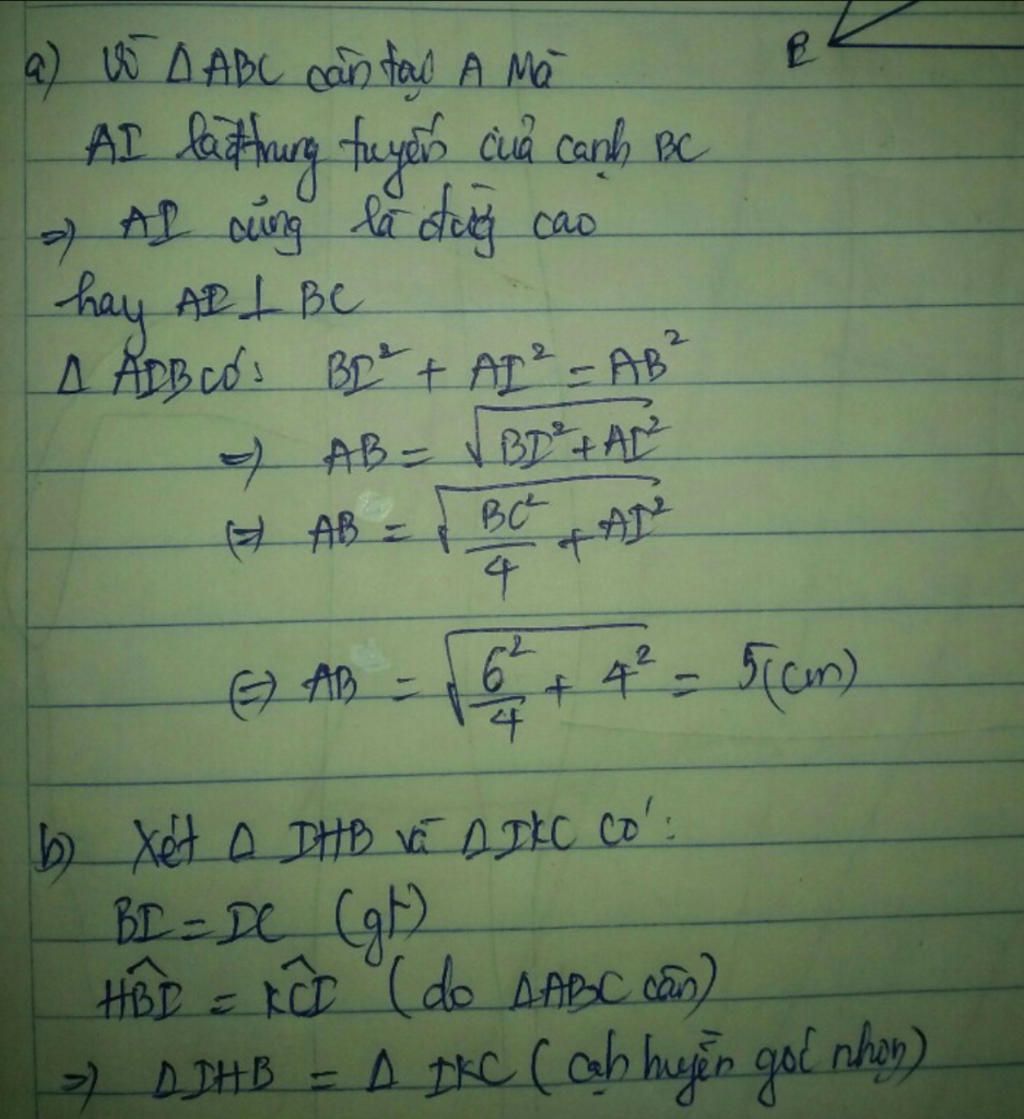 B
a) Vì Δ ABC cân tại A Mà
AI là trung tuyến của cạnh BC
=> AI cũng là đường cao
hay AI ⊥ BC
Δ AIB có: BI² + AI² = AB²
=> AB = √(BI² + AI²)
<=> AB = √(BC²/4 + AI²)
<=> AB = √(6²/4 + 4²) = 5(cm)
b) Xét Δ IHB và Δ IKC có:
BI = IC (gt)
HBI^ = KCI^ (do ΔABC cân)
=> Δ IHB = Δ IKC (cạnh huyền góc nhọn)